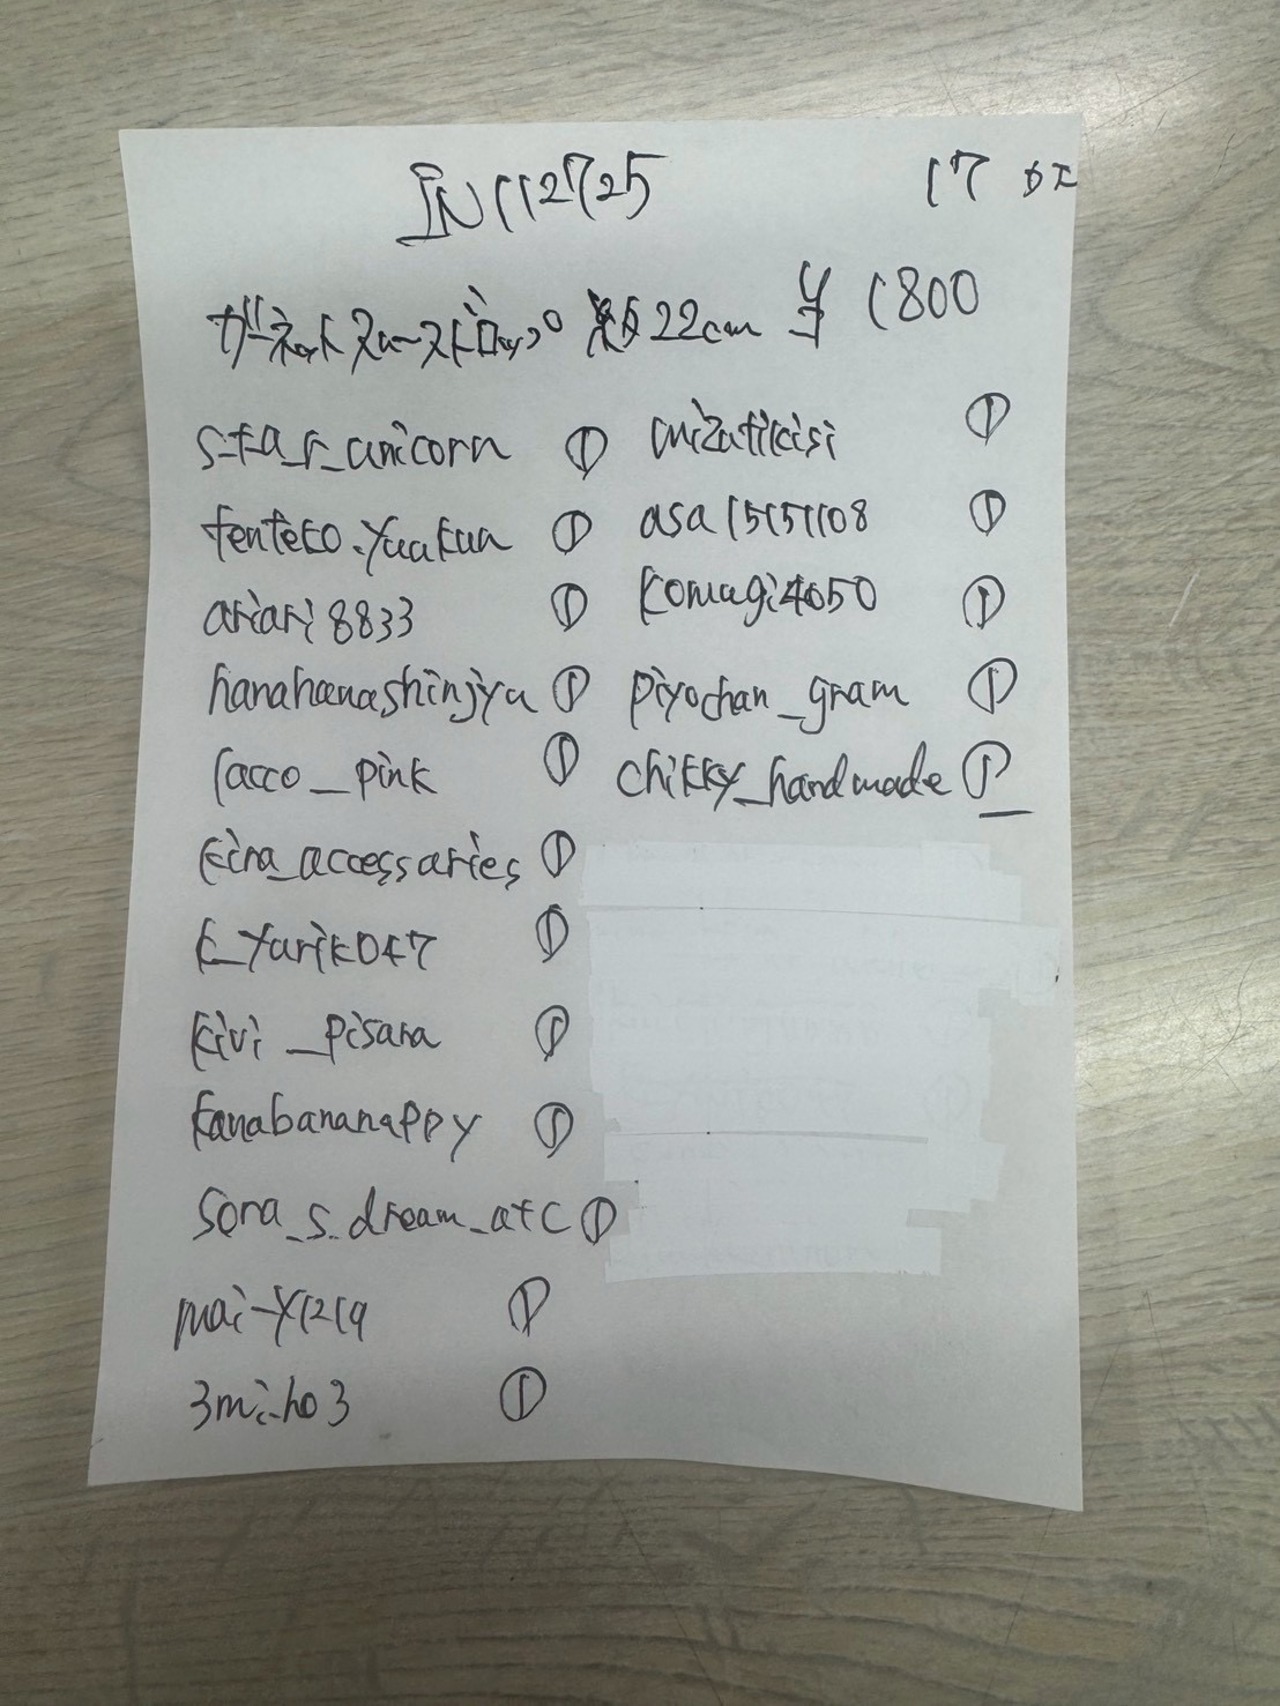 IN112725 17点
ガーネットスムースドロップ 約22cm ¥1800
star_unicorn ①
tenteko.yuukun ①
ariari8833 ①
hanahanashinjyu ①
racco_pink ①
kira_accessaries ①
k_yurik047 ①
kivi_pisara ①
kanabananappy ①
sora_s.dream_atc ①
mai-y1219 ①
3miho3 ①
mizutikisi ①
asa15151108 ①
komugi4050 ①
piyochan_gram ①
chikky_handmade ①